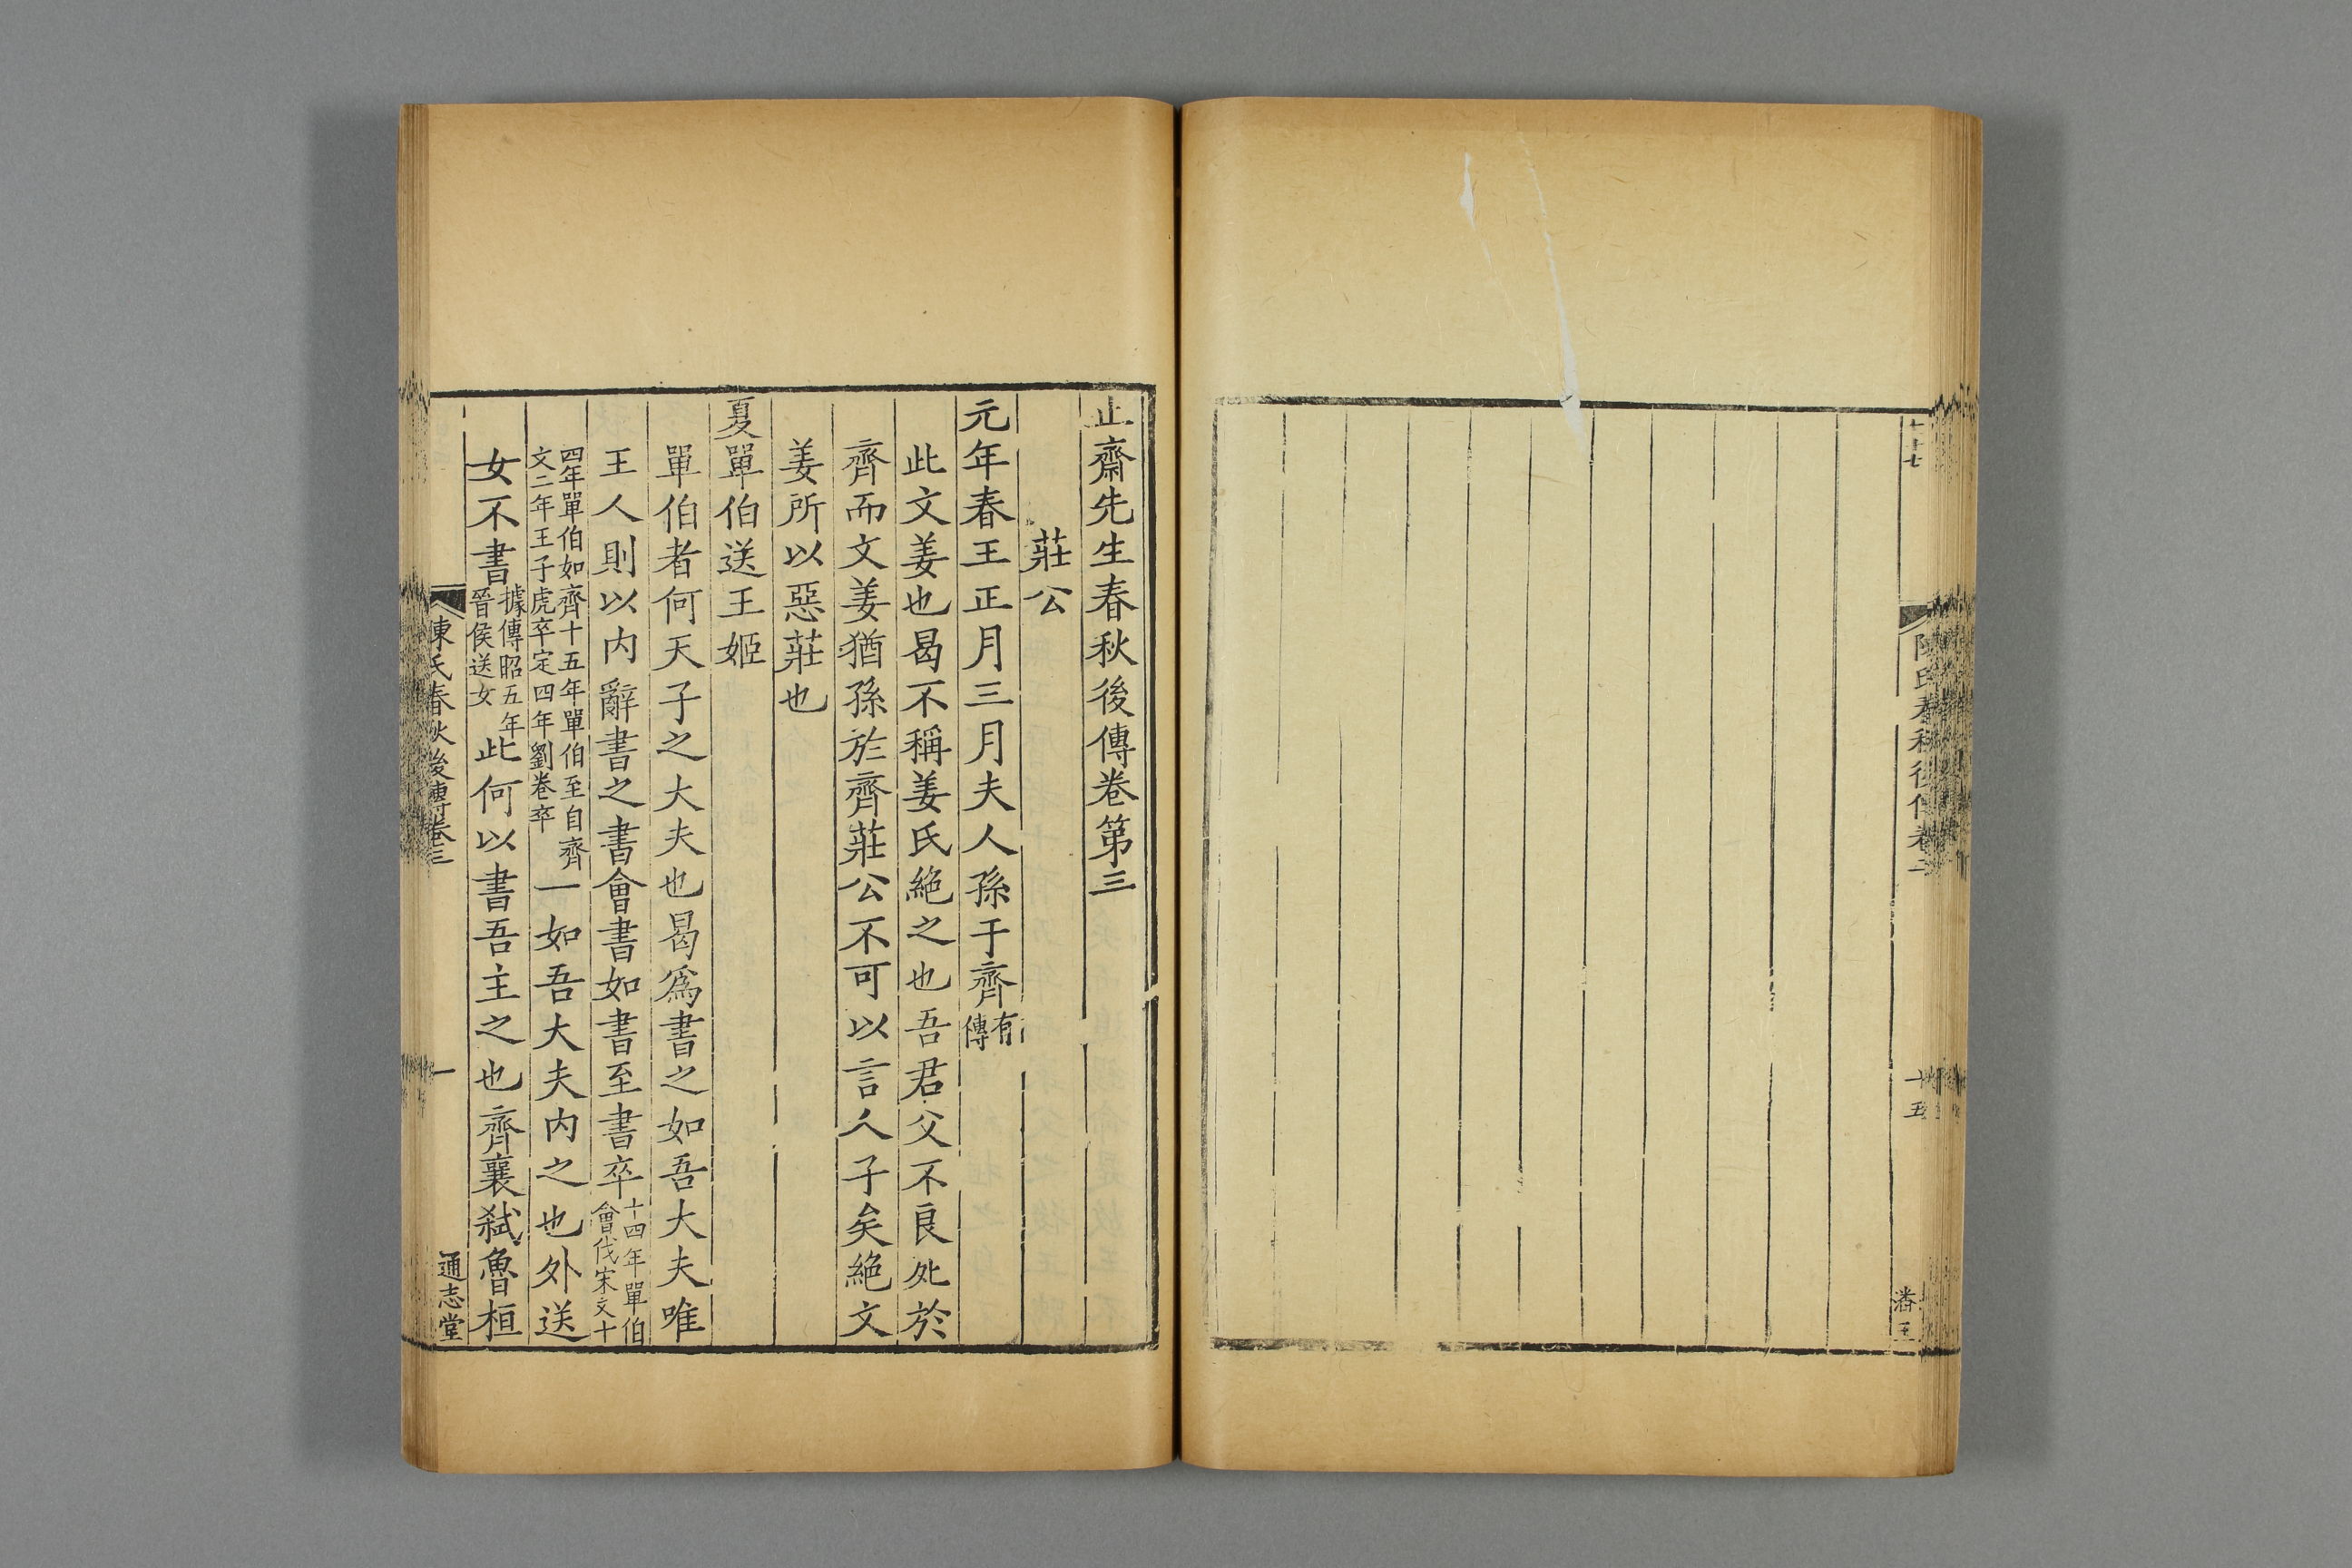 止齋先生春秋後傳卷第三
莊公
元年春王正月三月夫人孫于齊有傳
此文姜也曷不稱姜氏絶之也吾君父不良死於
齊而文姜猶孫於齊莊公不可以言人子矣絶文
姜所以惡莊也
夏單伯送王姬
單伯者何天子之大夫也曷爲書之如吾大夫唯
王人則以内辭書之書會書如書至書卒十四年單伯會伐宋文十
四年單伯如齊十五年單伯至自齊文二年王子虎卒定四年劉卷卒一如吾大夫内之也外送
女不書據傳昭五年晉侯送女此何以書吾主之也齊襄弑魯桓
陳氏春秋後傳卷三
一
通志堂
十五